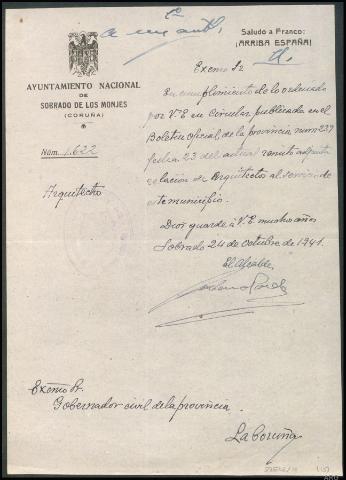 Saludo a Franco:
¡ARRIBA ESPAÑA!
AYUNTAMIENTO NACIONAL
DE
SOBRADO DE LOS MONJES
(CORUÑA)
Núm. 1.622
Arquitecto
Excmo Sr
En cumplimiento de lo ordenado
por V.E. en Circular publicada en el
Boletin oficial de la provincia num 239
fecha 23 del actual remito adjunta
relación de Arquitectos al servicio de
este municipio.
Dios guarde á V.E. muchos años
Sobrado 24 de octubre de 1941.
El Alcalde,
Excmo Sr.
Gobernador civil de la provincia.
La Coruña